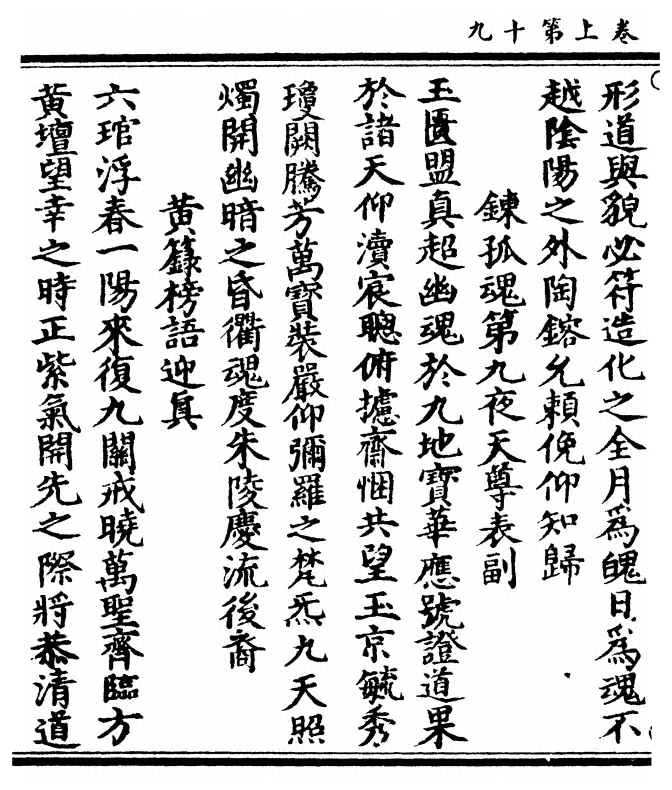 卷上第十九
形道與貌必符造化之全月爲魄日爲魂不
越陰陽之外陶鎔允賴俛仰知歸
鍊孤魂第九夜天尊表副
玉匱盟真超幽魂於九地寶華應號證道果
於諸天仰瀆宸聰俯攄齋悃共望玉京毓秀
瓊闕騰芳萬寶裝嚴仰彌羅之梵炁九天照
燭開幽暗之昏衢魂度朱陵慶流後裔
黃籙榜語迎真
六琯浮春一陽來復九關戒曉萬聖齊臨方
黃壇望幸之時正紫氣開先之際將恭清道